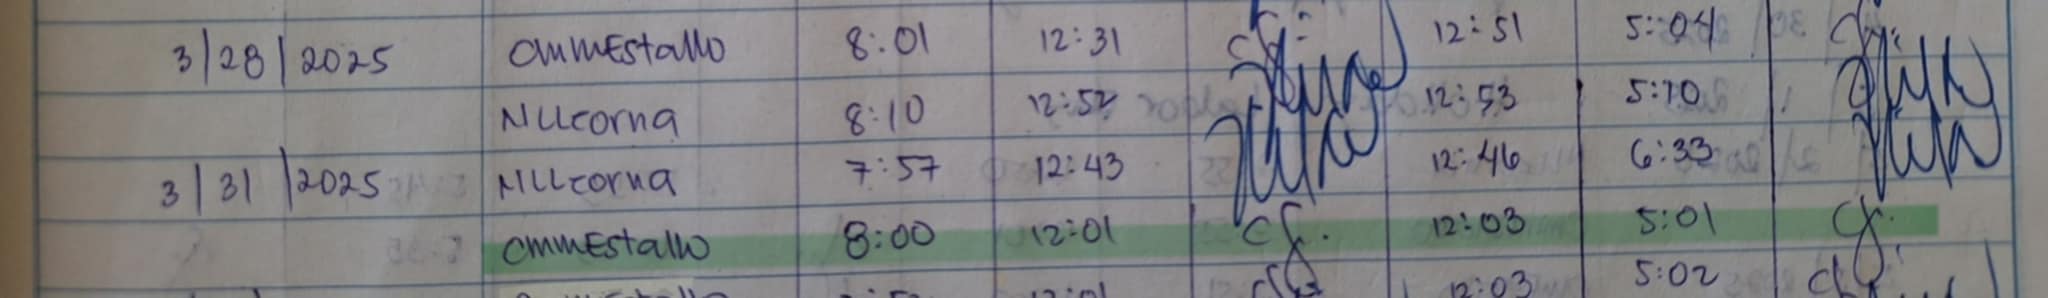 3/28/2025 CMMEstallo 8:01 12:31 12:51 5:04
NLLcorna 8:10 12:52 12:53 5:10
3/31/2025 NLLcorna 7:57 12:43 12:46 6:33
CMMEstallo 8:00 12:01 cf. 12:03 5:01 cf.
12:01 12:03 5:02